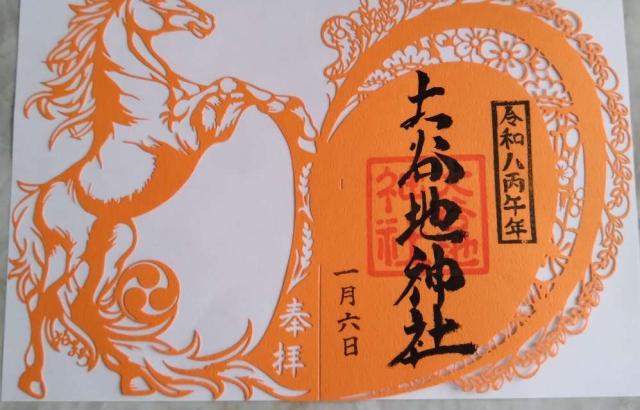 令和八丙午年
大谷地神社
大谷地神社
一月六日
奉拝